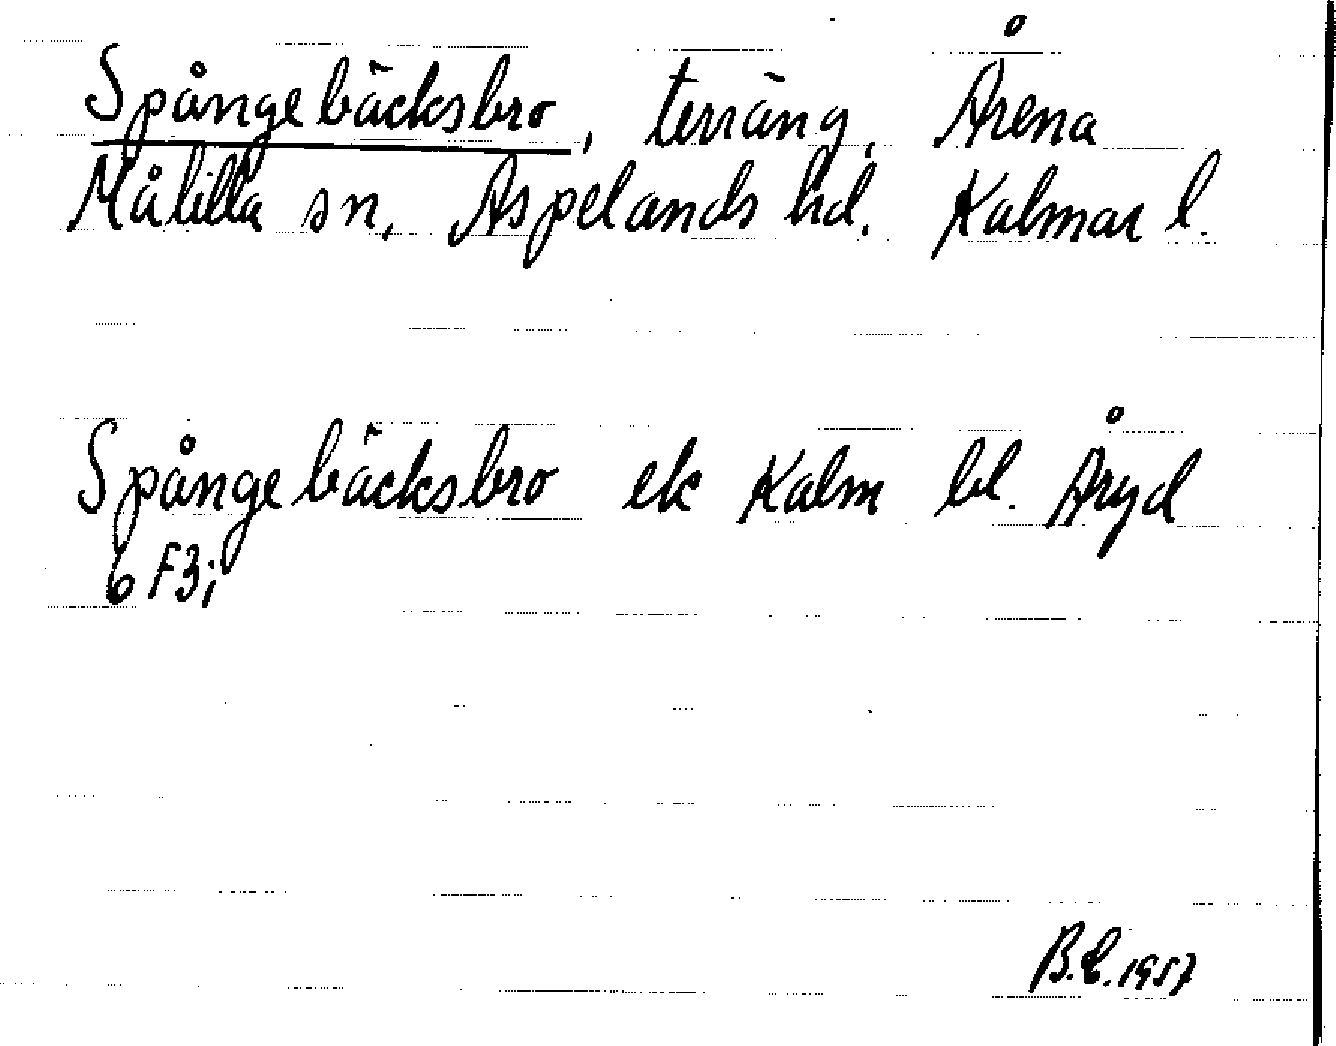 Spångebäcksbro, terräng, Årena
Målilla sn, Aspelands hd. Kalmar l.
Spångebäcksbro ek Kalm bl. Åryd
6 F3i
B.E. 1957